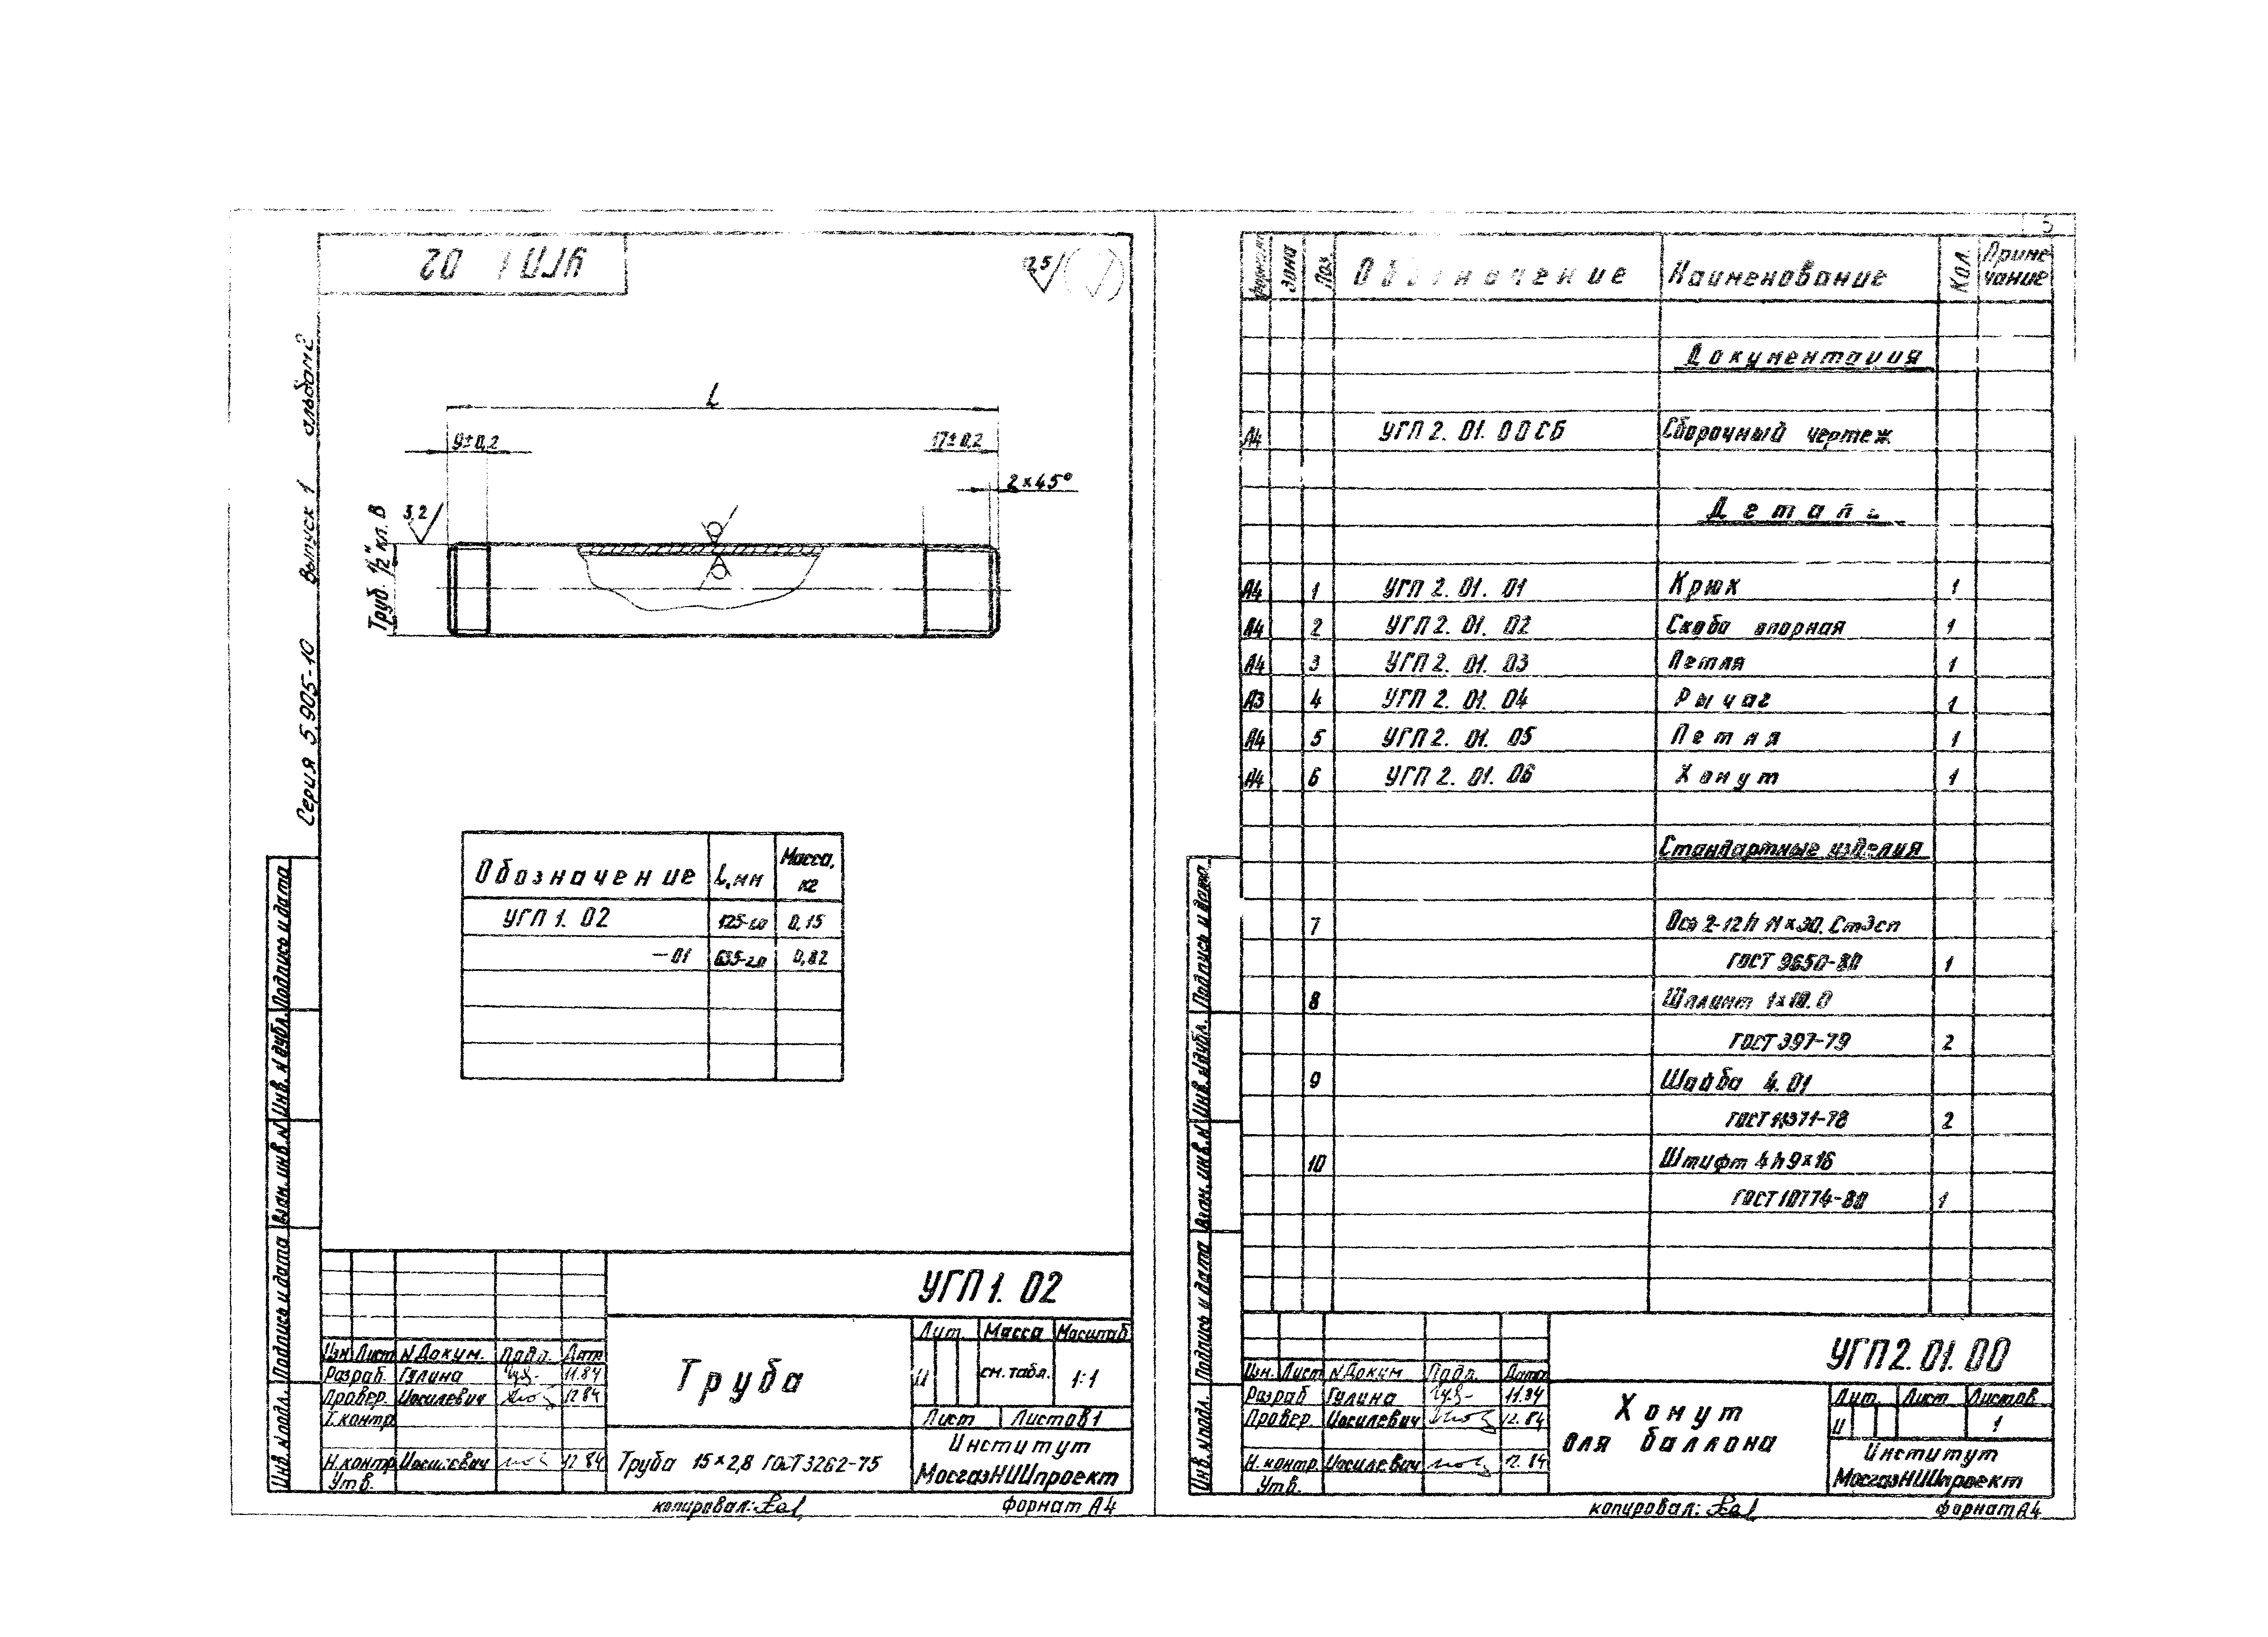 УГП 1 02
Серия 5.905-10 Выпуск 1 альбом 2
L
9±0,2
17±0,2
2×45°
3,2
Труб. 1/2" кл. В
Обозначение L, мм Масса, кг
УГП 1. 02 0,15
-01 0,82
Подпись и дата
Инв. N дубл.
Взам. инв. N
Подпись и дата
Инв. N подл.
УГП 1. 02
Изм Лист N Докум. Подп. Дата
Разраб. Гулина 11.84
Провер. Иосилевич 12 84
Т.контр
Н.контр Иосилевич 12 84
Утв.
Труба
Лит. Масса Масштаб
И см. табл. 1:1
Лист Листов 1
Труба 15×2,8 ГОСТ 3262-75
Институт
МосгазНИИпроект
копировал:
формат А4
5
Формат Зона Поз. Обозначение Наименование Кол. Приме-
чание
Документация
А4 УГП 2. 01. 00 СБ Сборочный чертеж
Детали
А4 1 УГП 2. 01. 01 Крюк 1
А4 2 УГП 2. 01. 02 Скоба опорная 1
А4 3 УГП 2. 01. 03 Петля 1
А3 4 УГП 2. 01. 04 Рычаг 1
А4 5 УГП 2. 01. 05 Петля 1
А4 6 УГП 2. 01. 06 Хомут 1
Стандартные изделия
7 Ось 2-12h 11×30. Ст3сп
ГОСТ 9650-80 1
8 Шплинт 1×10. 0
ГОСТ 397-79 2
9 Шайба 4. 01
ГОСТ 11371-78 2
10 Штифт 4h9×16
ГОСТ 10774-80 1
Подпись и дата
Инв. N дубл.
Взам. инв. N
Подпись и дата
Инв. N подл.
УГП 2. 01. 00
Изм. Лист N Докум Подп. Дата
Разраб Гулина 11.84
Провер. Иосилевич 12. 84
Н. контр. Иосилевич 12. 84
Утв.
Хомут
для баллона
Лит. Лист Листов
И 1
Институт
МосгазНИИпроект
копировал:
формат А4